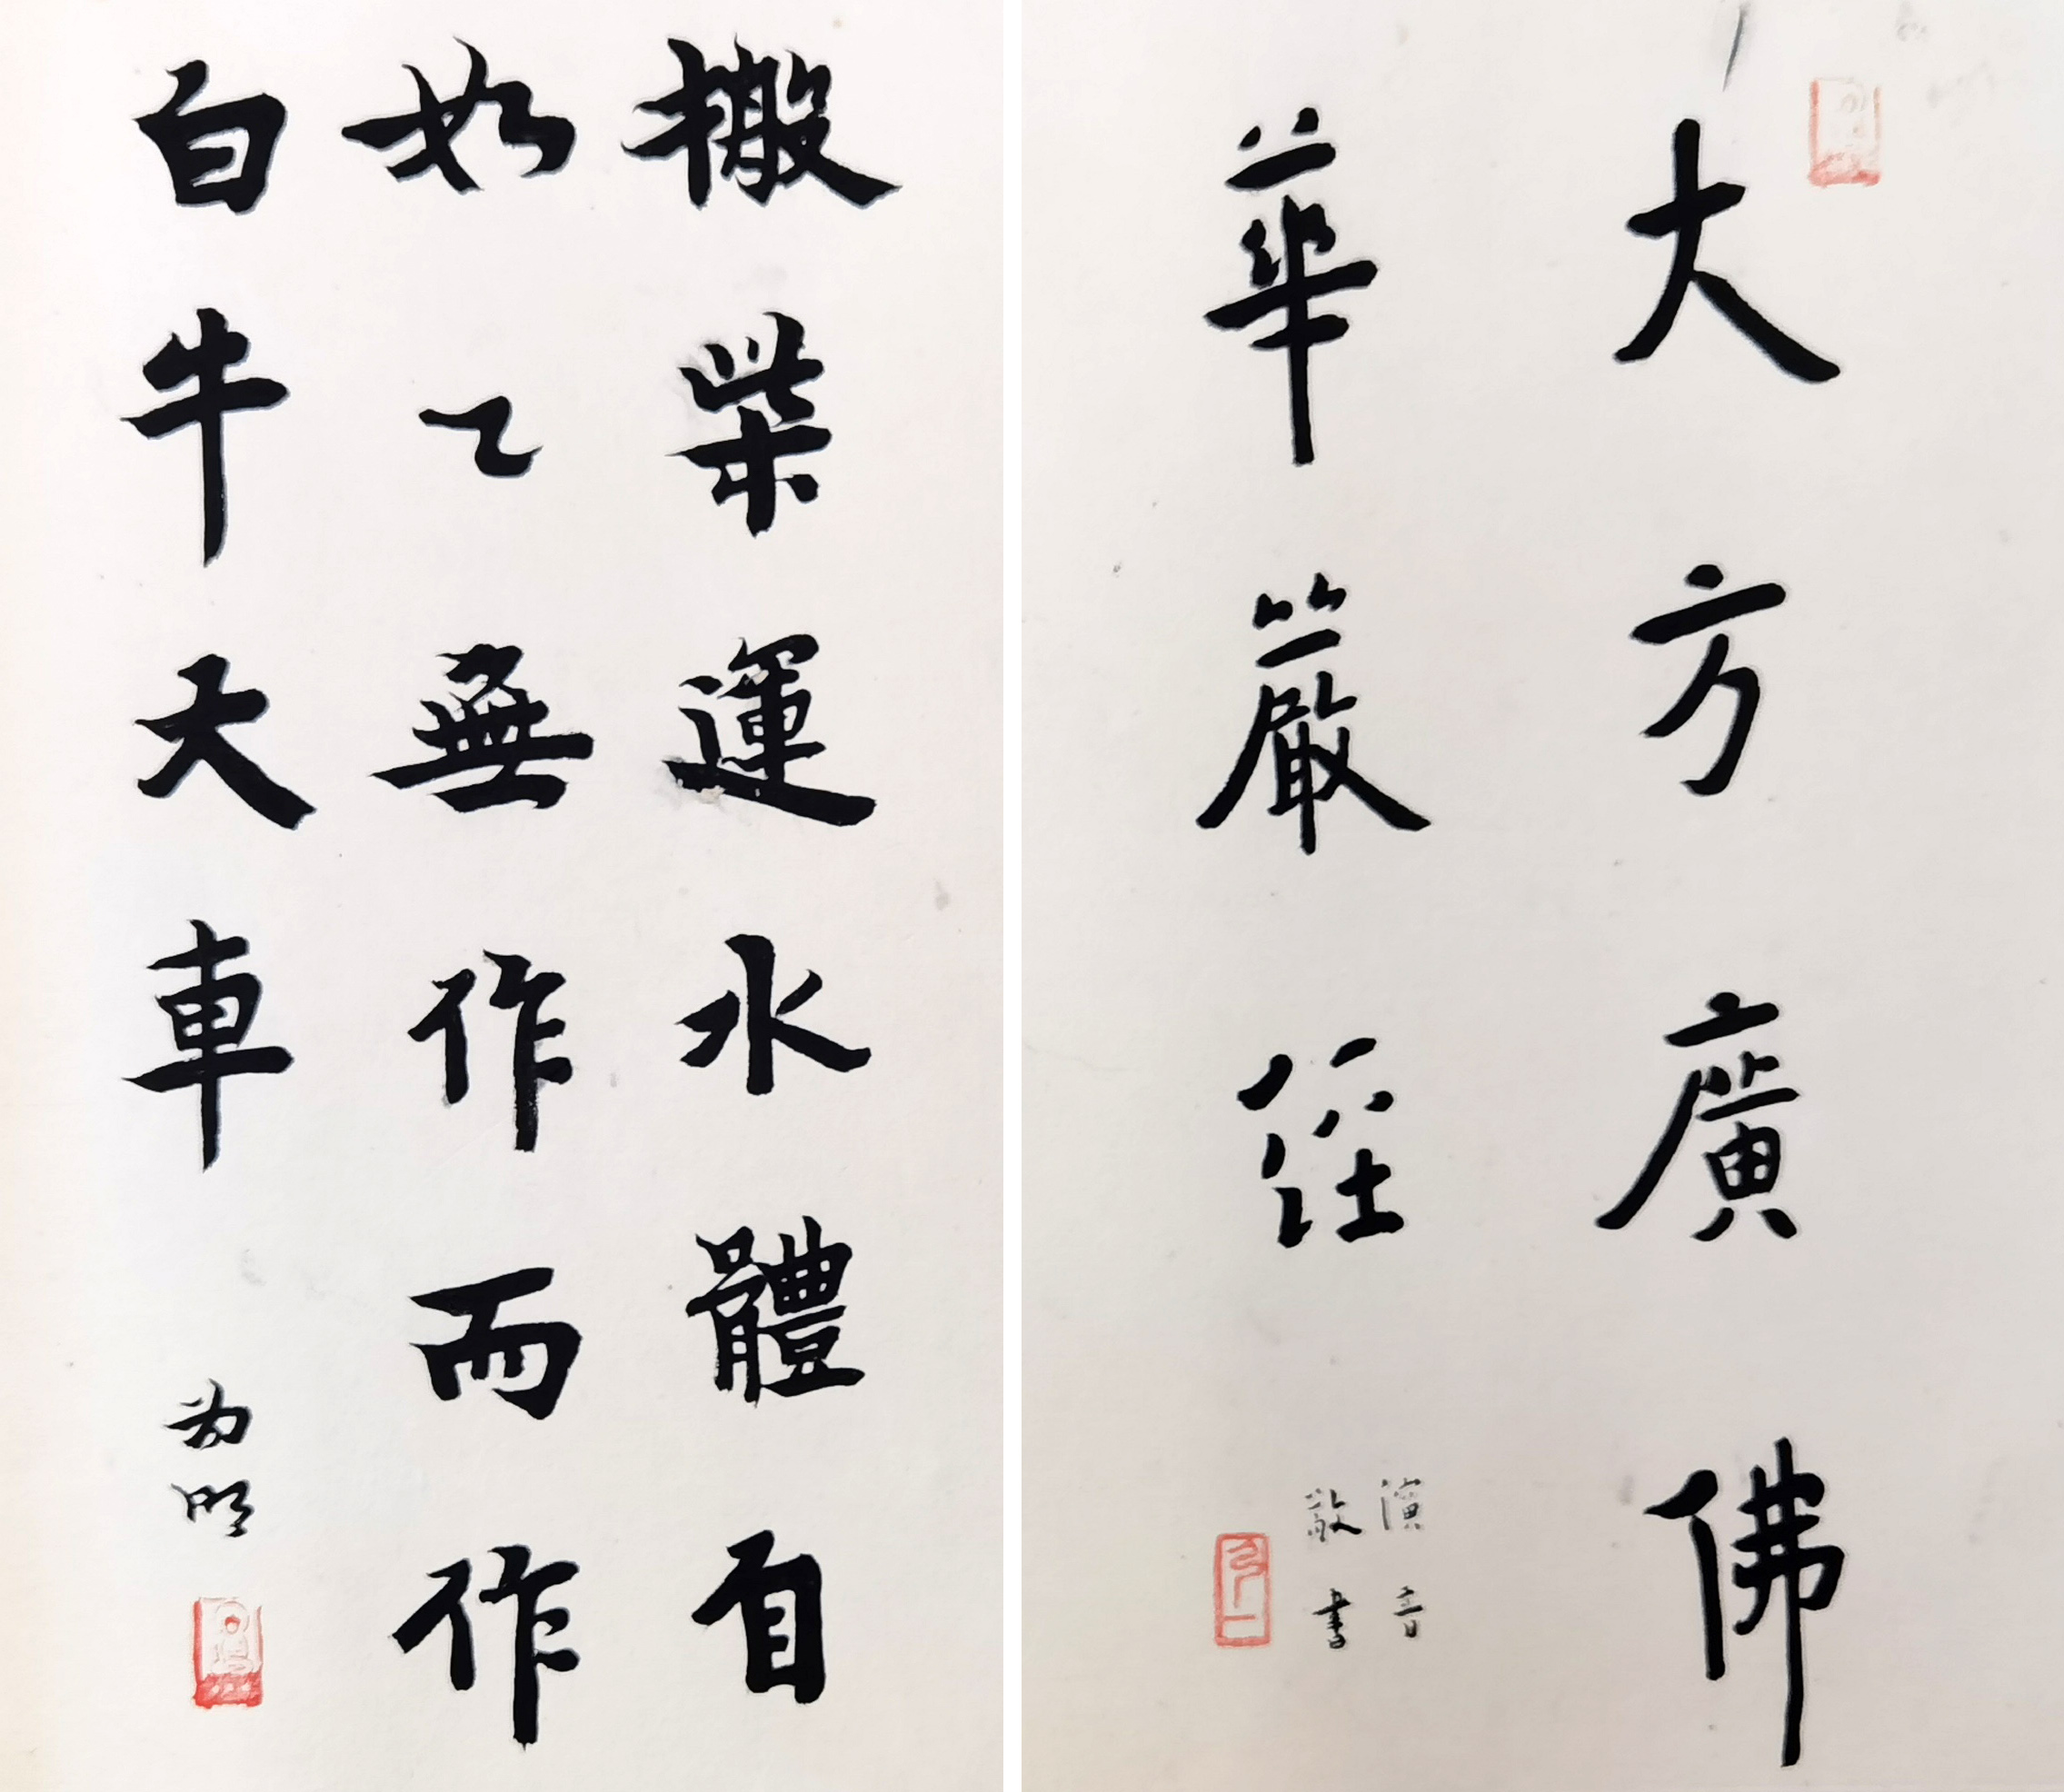 大方廣佛
華嚴經
演音
敬書
弘一
搬柴運水體自
如〻無作而作
白牛大車
為明